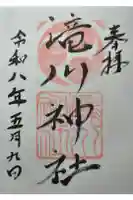 奉拝
滝川神社
令和八年五月九日